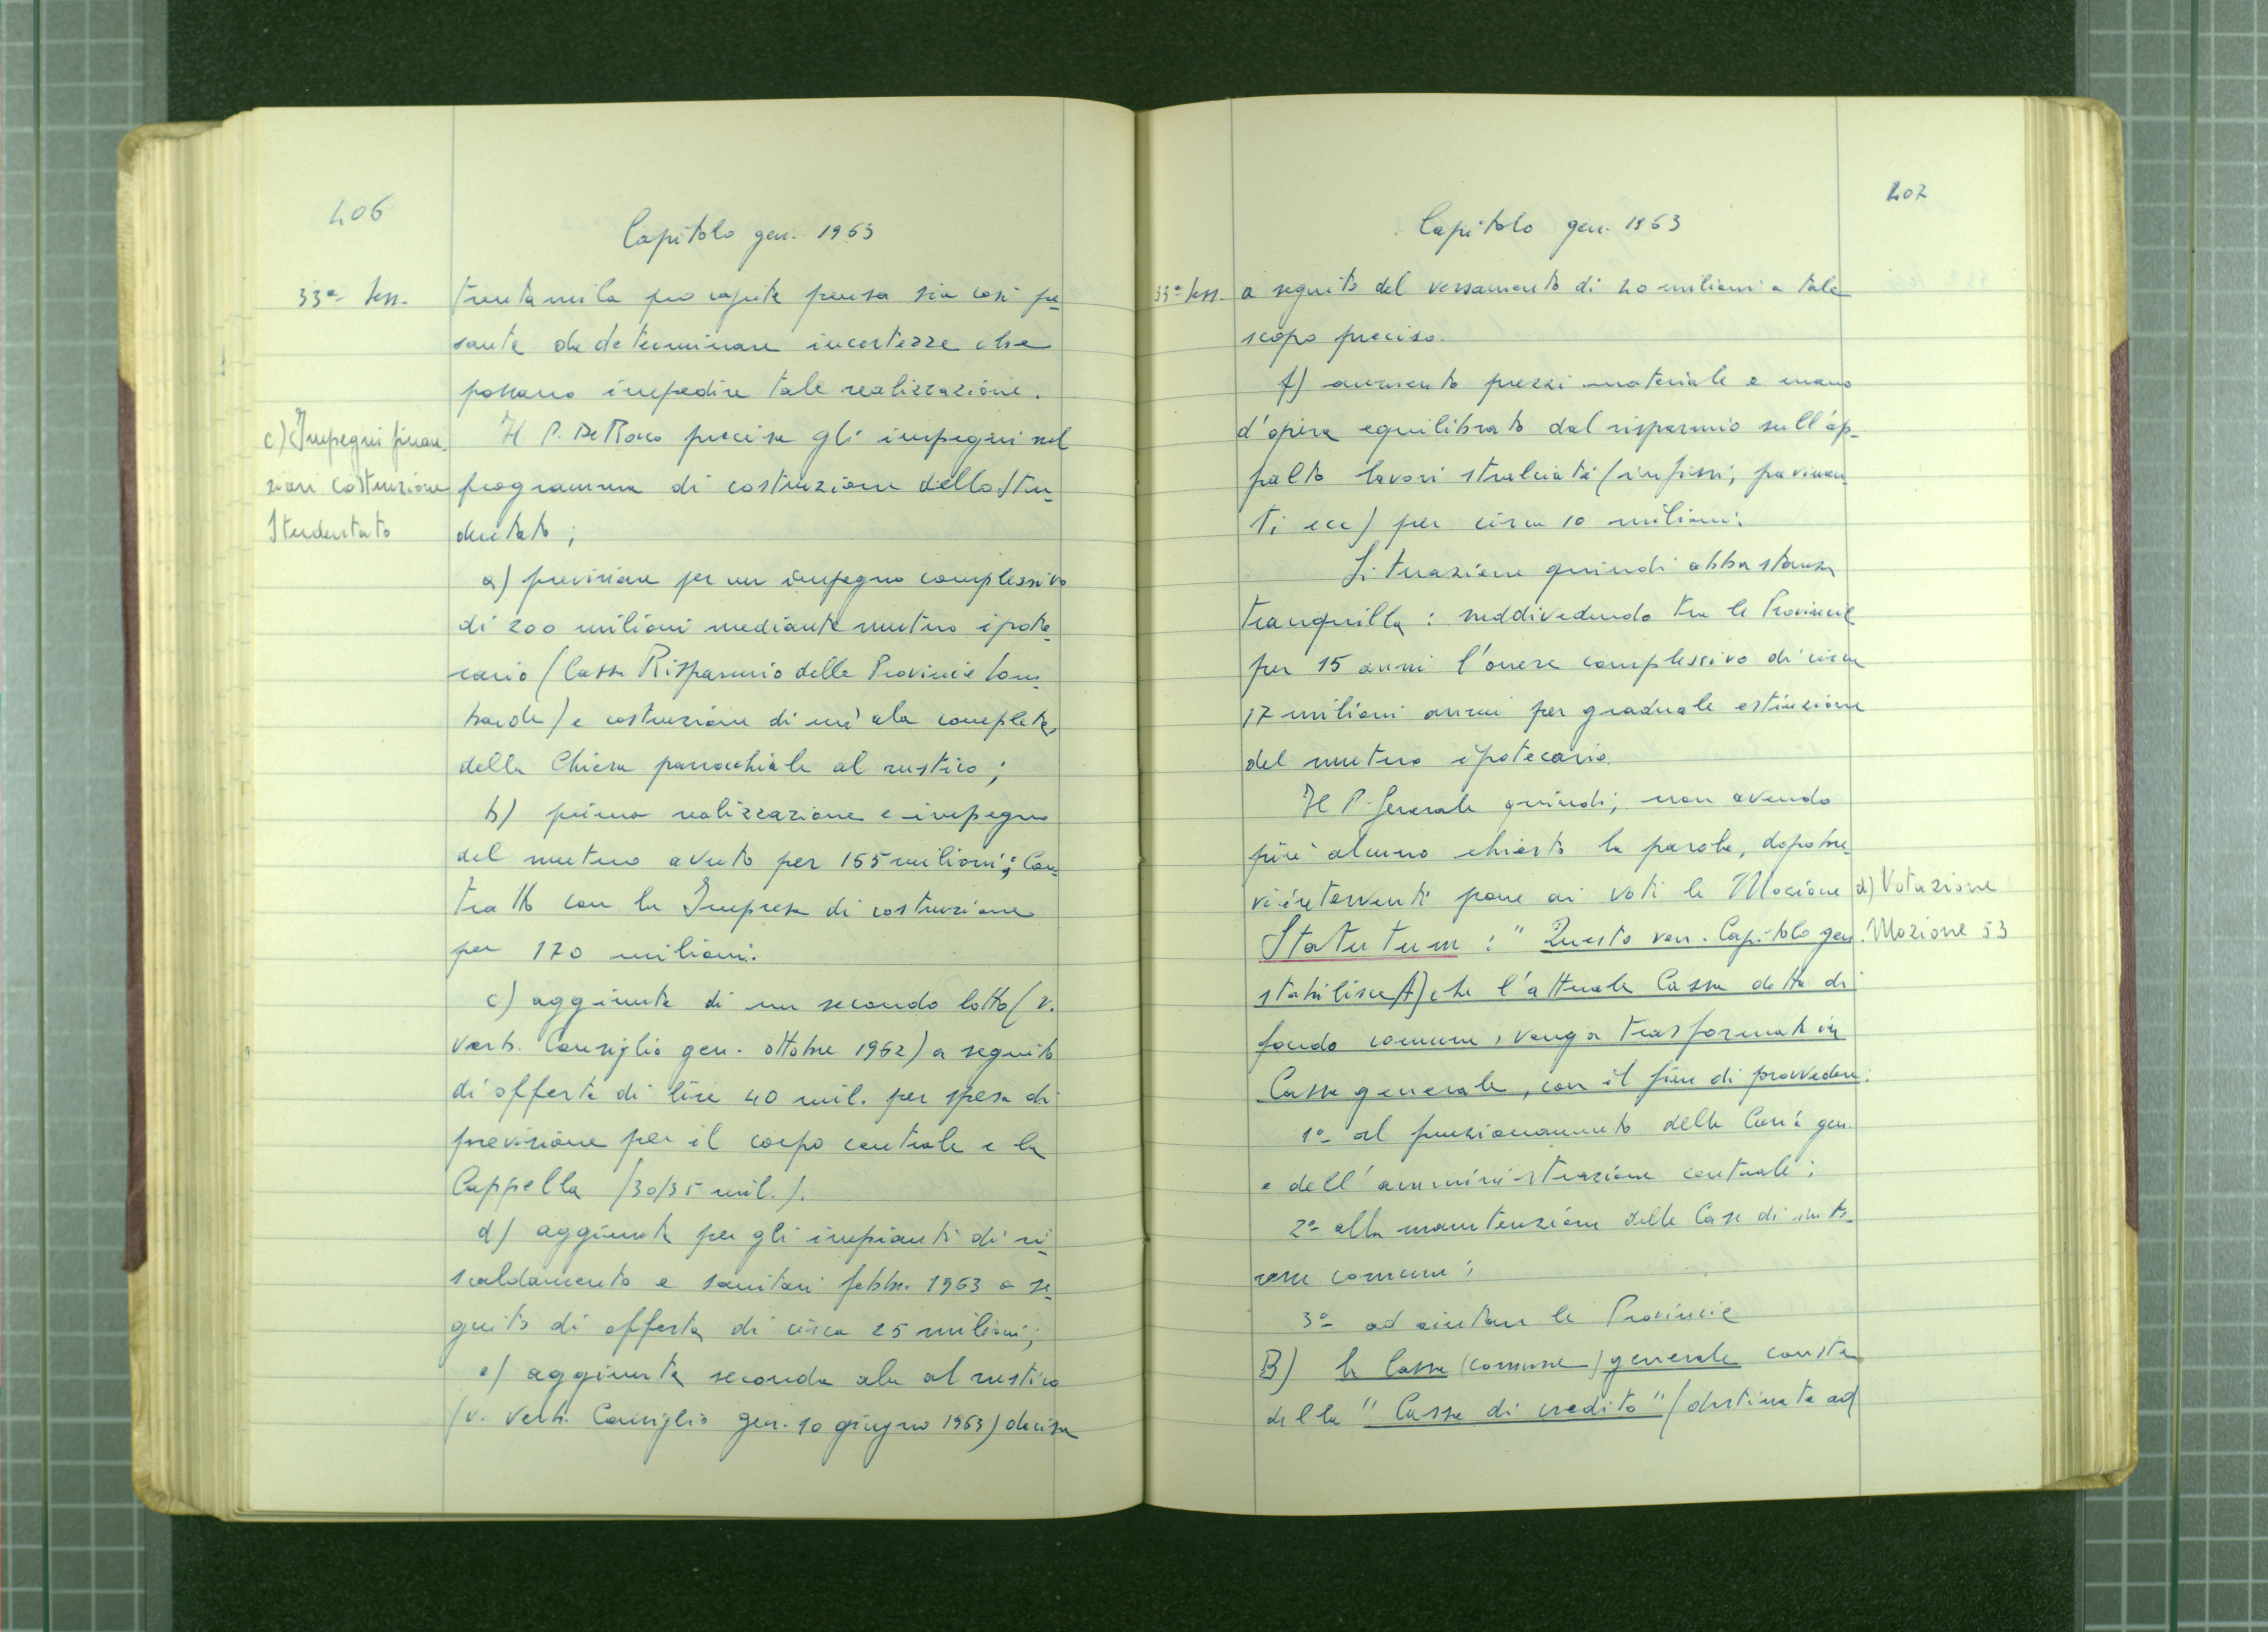 406
Capitolo gen. 1963
33ª Sess.
trentamila pro capite pensa sia così pe-
sante da determinare incertezze che
possano impedire tale realizzazione.
c) Impegni finan-
ziari costruzione
Studentato
Il P. De Rocco precisa gli impegni nel
programma di costruzione dello Stu-
dentato;
a) previsione per un impegno complessivo
di 200 milioni mediante mutuo ipote-
cario (Cassa Risparmio delle Provincie Lom-
barde) e costruzione di un'ala completa
della Chiesa parrocchiale al rustico;
b) prima realizzazione e impegno
del mutuo avuto per 155 milioni; Con-
tratto con la Impresa di costruzione
per 170 milioni.
c) aggiunta di un secondo lotto (v.
verb. Consiglio gen. ottobre 1962) a seguito
di offerta di lire 40 mil. per spesa di
previsione per il corpo centrale e la
Cappella (30/35 mil.).
d) aggiunta per gli impianti di ri-
scaldamento e sanitari febbr. 1963 a se-
guito di offerta di circa 25 milioni;
e) aggiunta seconda ala al rustico
(v. verb. Consiglio gen. 10 giugno 1963) decisa
407
Capitolo gen. 1963
33ª Sess.
a seguito del versamento di 20 milioni a tale
scopo preciso.
f) aumento prezzi materiale e mano
d'opera equilibrato dal risparmio sull'ap-
palto lavori stralciati (infissi, pavimen-
ti ecc) per circa 10 milioni.
Situazione quindi abbastanza
tranquilla: suddividendo tra le Provincie
per 15 anni l'onere complessivo di circa
17 milioni annui per graduale estinzione
del mutuo ipotecario.
Il P. Generale quindi, non avendo
più alcuno chiesto la parola, dopo bre-
vi interventi pone ai voti la Mozione
d) Votazione
Mozione 53
Statutum: "Questo ven. Capitolo gen.
stabilisce A) che l'attuale Cassa detta di
fondo comune, venga trasformata in
Cassa generale, con il fine di provvedere:
1º al funzionamento della Curia gen.
e dell'amministrazione centrale;
2º alla manutenzione delle Case di inte-
resse comune;
3º ad aiutare le Provincie
B) la Cassa (comune) generale consta
della "Cassa di credito" (destinata ad